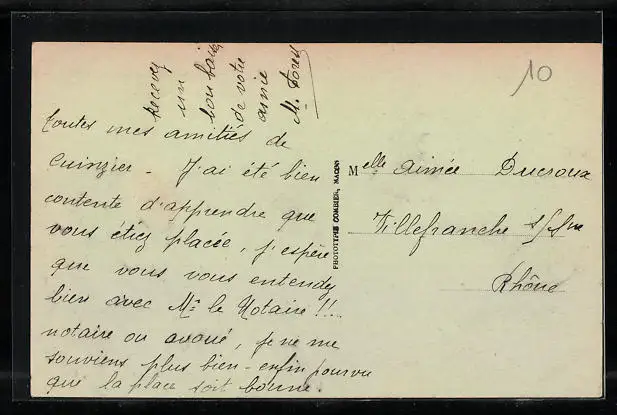 toutes mes amitiés de
Cuinzier - J'ai été bien
contente d'apprendre que
vous étiez placée, j'espère
que vous vous entendez
bien avec Mr le Notaire !!..
notaire ou avoué, je ne me
souviens plus bien - enfin pourvu
que la place soit bonne.
Recevez
un
bon baiser
de votre
amie
M.
10
Melle Aimée Ducroux
Villefranche s/Sne
Rhône
PHOTOTYPIE COMBIER, MACON